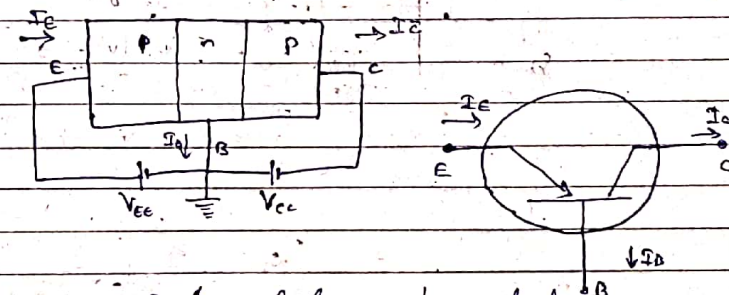 I_E
p n p
I_C
E
C
I_B
B
V_EE
V_CC
I_E
I_C
E
C
↓I_B
B